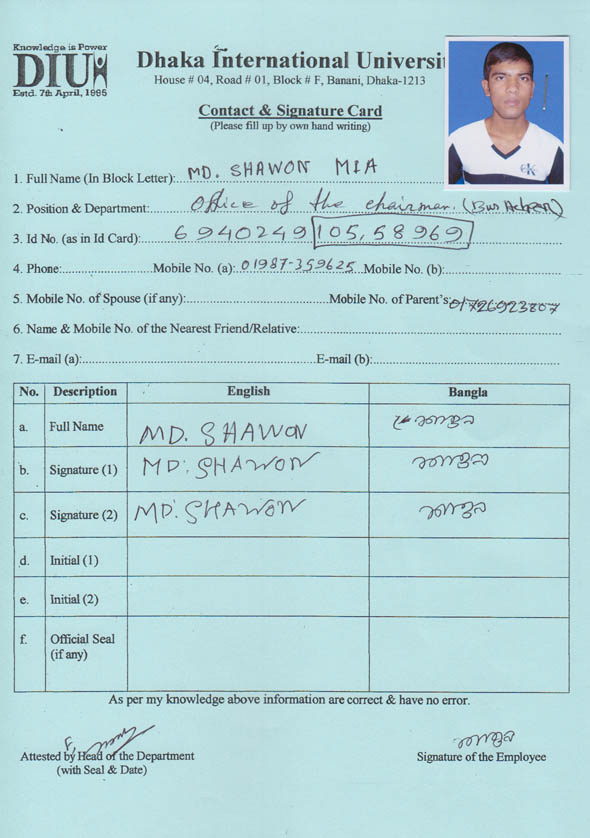 Knowledge is Power
DIU
Estd. 7th April, 1995
Dhaka International Universit
House # 04, Road # 01, Block # F, Banani, Dhaka-1213
Contact & Signature Card
(Please fill up by own hand writing)
1. Full Name (In Block Letter): MD. SHAWON MIA
2. Position & Department: Office of the chairman.
3. Id No. (as in Id Card): 6940249 105,58969
4. Phone: Mobile No. (a): 01987-359625 Mobile No. (b):
5. Mobile No. of Spouse (if any): Mobile No. of Parent's:
6. Name & Mobile No. of the Nearest Friend/Relative:
7. E-mail (a): E-mail (b):
No. Description English Bangla
a. Full Name MD. SHAWON
b. Signature (1) MD. SHAWON
c. Signature (2) MD. SHAWON
d. Initial (1)
e. Initial (2)
f. Official Seal
(if any)
As per my knowledge above information are correct & have no error.
Attested by Head of the Department Signature of the Employee
(with Seal & Date)